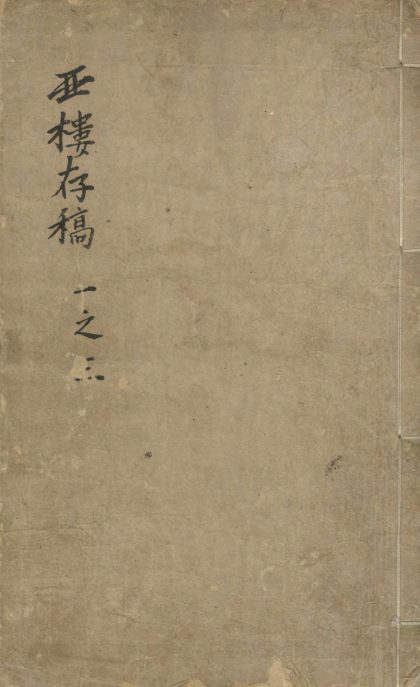 亜樓存稿 一之三